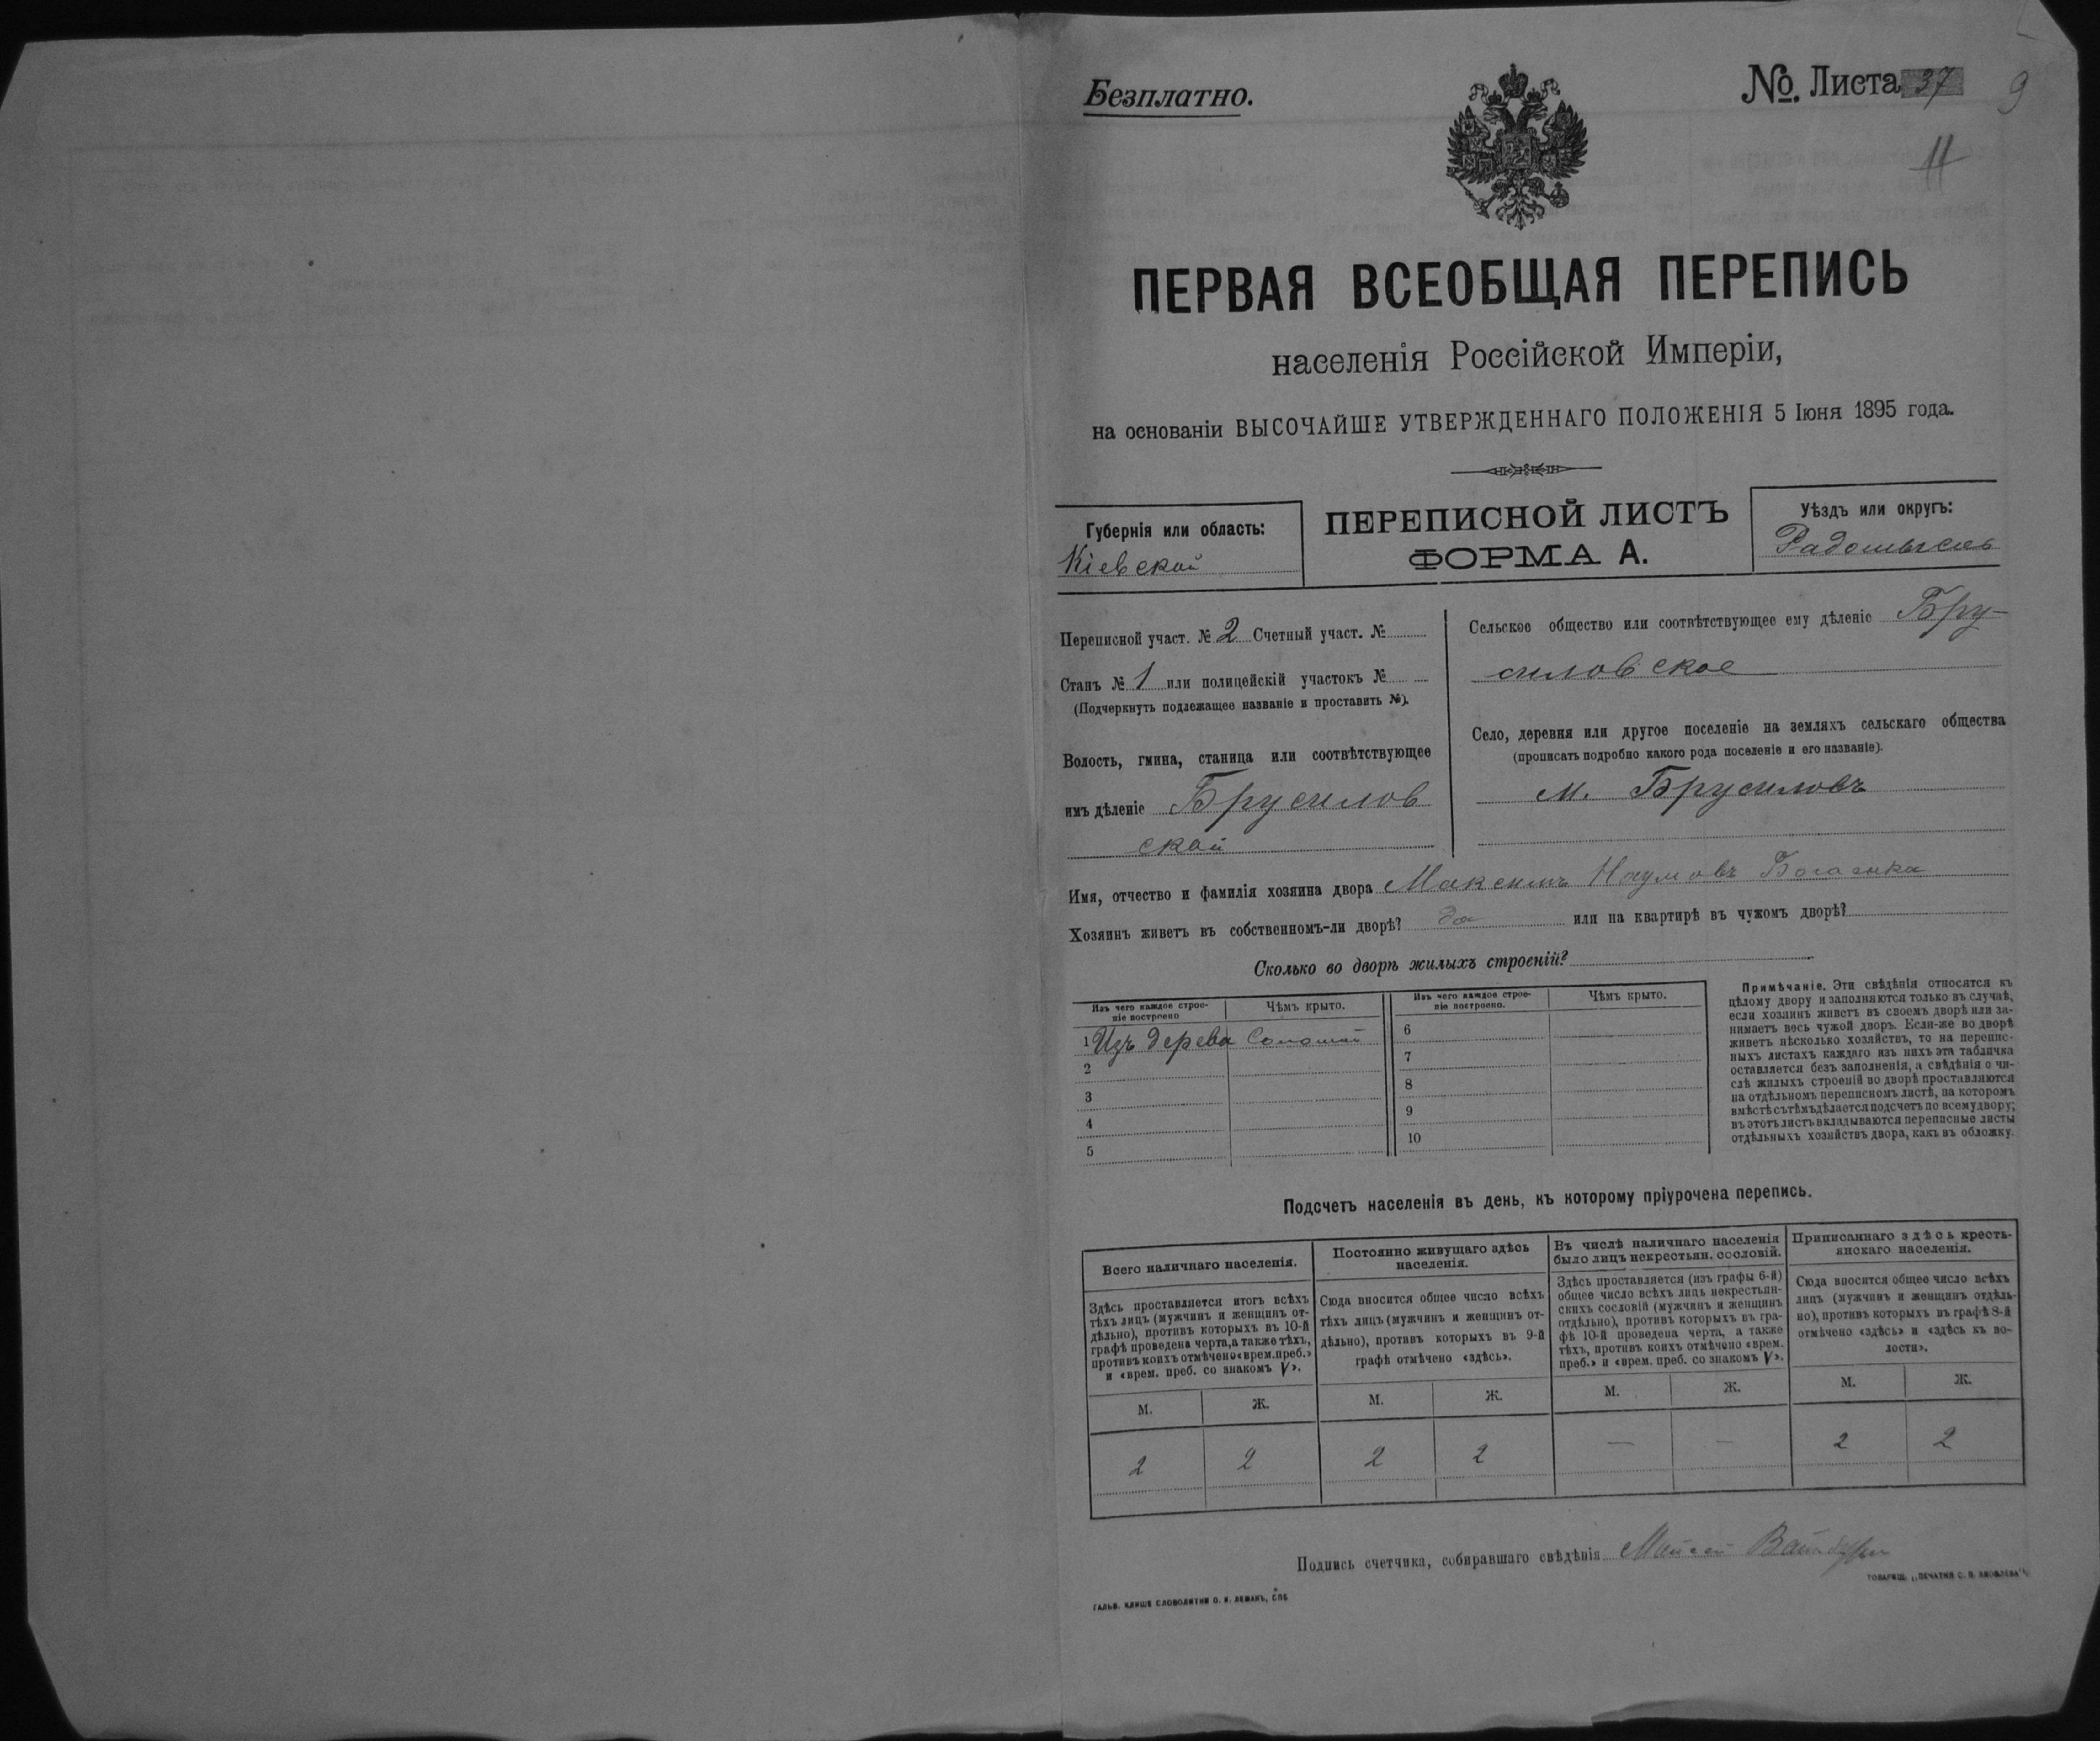 Безплатно.
№ Листа 37
9
11
ПЕРВАЯ ВСЕОБЩАЯ ПЕРЕПИСЬ
населенія Россійской Имперіи,
на основаніи ВЫСОЧАЙШЕ УТВЕРЖДЕННАГО ПОЛОЖЕНІЯ 5 Іюня 1895 года.
Губернія или область:
Кіевской
ПЕРЕПИСНОЙ ЛИСТЪ
ФОРМА А.
Уѣздъ или округъ:
Радомысль
Переписной участ. № 2 Счетный участ. №
Станъ № 1 или полицейскій участокъ №
(Подчеркнуть подлежащее названіе и проставить №).
Волость, гмина, станица или соотвѣтствующее
имъ дѣленіе Брусилов
ской
Сельское общество или соотвѣтствующее ему дѣленіе Бру-
силовское
Село, деревня или другое поселеніе на земляхъ сельскаго общества
(прописать подробно какого рода поселеніе и его названіе).
м. Брусиловъ
Имя, отчество и фамилія хозяина двора Максимъ Наумовъ
Хозяинъ живетъ въ собственномъ-ли дворѣ? да или на квартирѣ въ чужомъ дворѣ?
Сколько во дворѣ жилыхъ строеній?
Изъ чего каждое строе-
ніе построено
Чѣмъ крыто.
Изъ чего каждое строе-
ніе построено.
Чѣмъ крыто.
1 Изъ дерева Соломой
2
3
4
5
6
7
8
9
10
Примѣчаніе. Эти свѣдѣнія относятся къ
цѣлому двору и заполняются только въ случаѣ,
если хозяинъ живетъ въ своемъ дворѣ или за-
нимаетъ весь чужой дворъ. Если-же во дворѣ
живетъ нѣсколько хозяйствъ, то на перепис-
ныхъ листахъ каждаго изъ нихъ эта табличка
оставляется безъ заполненія, а свѣдѣнія о чи-
слѣ жилыхъ строеній во дворѣ проставляются
на отдѣльномъ переписномъ листѣ, на которомъ
вмѣстѣ съ тѣмъ дѣлается подсчетъ по всему двору;
въ этотъ листъ вкладываются переписные листы
отдѣльныхъ хозяйствъ двора, какъ въ обложку.
Подсчетъ населенія въ день, къ которому пріурочена перепись.
Всего наличнаго населенія.
Здѣсь проставляется итогъ всѣхъ
тѣхъ лицъ (мужчинъ и женщинъ от-
дѣльно), противъ которыхъ въ 10-й
графѣ проведена черта, а также тѣхъ,
противъ коихъ отмѣчено «врем. преб.»
и «врем. преб. со знакомъ V».
М. Ж.
2 2
Постоянно живущаго здѣсь
населенія.
Сюда вносится общее число всѣхъ
тѣхъ лицъ (мужчинъ и женщинъ от-
дѣльно), противъ которыхъ въ 9-й
графѣ отмѣчено «здѣсь».
М. Ж.
2 2
Въ числѣ наличнаго населенія
было лицъ некрестьян. сословій.
Здѣсь проставляется (изъ графы 6-й)
общее число всѣхъ лицъ некрестьян-
скихъ сословій (мужчинъ и женщинъ
отдѣльно), противъ которыхъ въ гра-
фѣ 10-й проведена черта, а также
тѣхъ, противъ коихъ отмѣчено «врем.
преб.» и «врем. преб. со знакомъ V».
М. Ж.
— —
Приписаннаго здѣсь кресть-
янскаго населенія.
Сюда вносится общее число всѣхъ
лицъ (мужчинъ и женщинъ отдѣль-
но), противъ которыхъ въ графѣ 8-й
отмѣчено «здѣсь» и «здѣсь къ во-
лости».
М. Ж.
2 2
Подпись счетчика, собиравшаго свѣдѣнія
ГАЛЬВ. КЛИШЕ СЛОВОЛИТНИ О. И. ЛЕМАНЪ, СПБ
ТОВАРИЩ. „ПЕЧАТНЯ С. П. ЯКОВЛЕВА“